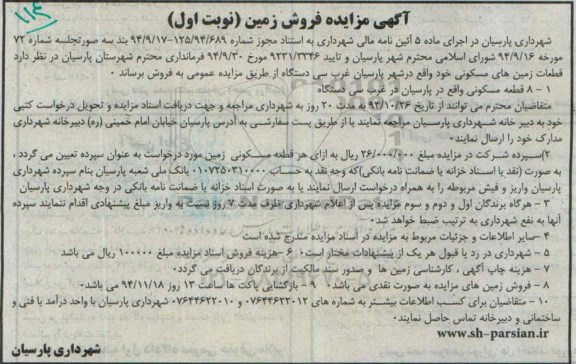 ۱۱۴
آگهی مزایده فروش زمین (نوبت اول)
شهرداری پارسیان در اجرای ماده ۵ آئین نامه مالی شهرداری به استناد مجوز شماره ۱۲۵/۹۴/۶۸۹-۹۴/۹/۱۷ بند سه صورتجلسه شماره ۷۲
مورخه ۹۴/۹/۱۶ شورای اسلامی محترم شهر پارسیان و تایید ۹۲۳۱/۳۳۴۶ مورخ ۹۴/۹/۳۰ فرمانداری محترم شهرستان پارسیان در نظر دارد
قطعات زمین های مسکونی خود واقع درشهر پارسیان غرب سی دستگاه از طریق مزایده عمومی به فروش برساند .
۱ - ۸ قطعه مسکونی واقع در پارسیان در غرب سی دستگاه
متقاضیان محترم می توانند از تاریخ ۹۴/۱۰/۲۶ به مدت ۲۰ روز به شهرداری مراجعه و جهت دریافت اسناد مزایده و تحویل درخواست کتبی
خود به دبیر خانه شهرداری پارسیان مراجعه نمایند یا از طریق پست سفارشی به آدرس پارسیان خیابان امام خمینی (ره) دبیرخانه شهرداری
مدارک خود را ارسال نمایند.
۲)سپرده شرکت در مزایده مبلغ ۲۶/۰۰۰/۰۰۰ ریال به ازای هر قطعه مسکونی زمین مورد درخواست به عنوان سپرده تعیین می گردد ,
به صورت (نقد یا اسناد خزانه یا ضمانت نامه بانکی)که وجه نقد به حساب ۰۱۰۷۲۵۰۳۱۰۰۰۰ بانک ملی شعبه پارسیان بنام سپرده شهرداری
پارسیان واریز و فیش مربوطه را به همراه درخواست ارسال نمایند یا به صورت اسناد خزانه یا ضمانت نامه بانکی در وجه شهرداری پارسیان
۳ - هرگاه برندگان اول و دوم و سوم مزایده پس از اعلام شهرداری ظرف مدت ۷ روز نسبت به واریز مبلغ پیشنهادی اقدام ننمایند سپرده
آنها به نفع شهرداری به ترتیب ضبط خواهد شد.
۴ -سایر اطلاعات و جزئیات مربوط به مزایده در اسناد مزایده مندرج شده است
۵ - شهرداری در رد یا قبول هر یک از پیشنهادات مختار است. ۶ -هزینه فروش اسناد مزایده مبلغ ۱۰۰۰۰۰ ریال می باشد
۷ - هزینه چاپ آگهی , کارشناسی زمین ها و صدور سند مالکیت از برندگان دریافت می گردد.
۸ - فروش زمین های مزایده به صورت نقدی می باشد. ۹ - بازگشایی پاکت ها ساعت ۱۳ روز ۹۴/۱۱/۱۸ می باشد.
۱۰ - متقاضیان برای کسب اطلاعات بیشتر به شماره های ۰۷۶۴۴۶۲۲۰۱۲ و ۰۷۶۴۴۶۲۲۰۱۰ شهرداری پارسیان با واحد درآمد یا فنی و
ساختمانی و دبیرخانه تماس حاصل نمایند.
www.sh-parsian.ir
شهرداری پارسیان